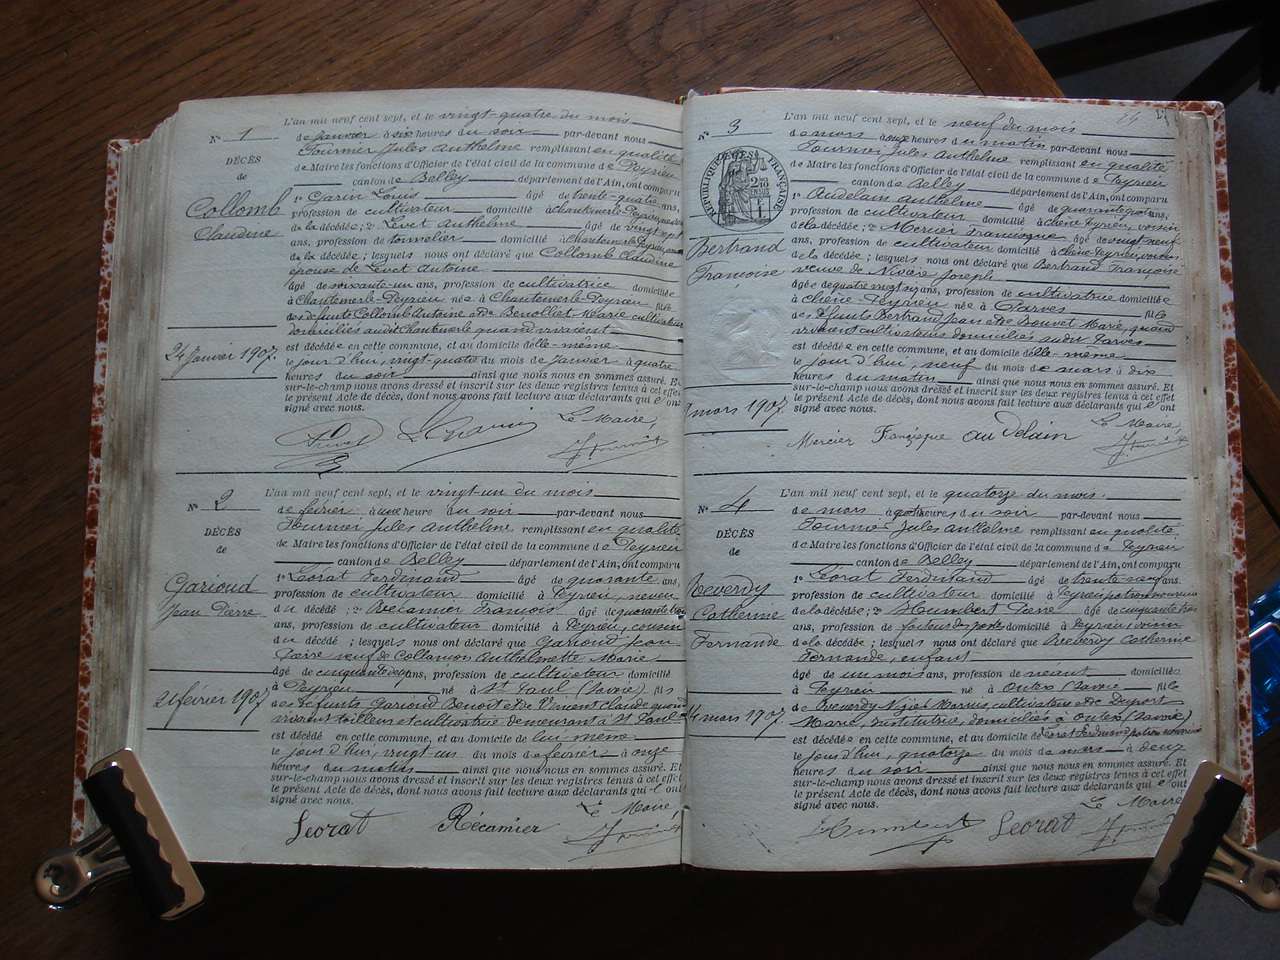 N° 1
DÉCÈS
de
Collomb
Claudine
24 Janvier 1907.
L'an mil neuf cent sept, et le vingt-quatre du mois
de Janvier à six heures du soir par-devant nous
Fournier Jules Anthelme remplissant en qualité
de Maire les fonctions d'Officier de l'état civil de la commune de Peyrieu
canton de Belley département de l'Ain, ont comparu
1° Garin Louis âgé de trente-quatre ans,
profession de cultivateur domicilié à Chantemerle-Peyrieu
de la décédée; 2° Levet Anthelme âgé de vingt-sept
ans, profession de tonnelier domicilié à Chantemerle-Peyrieu,
de la décédée; lesquels nous ont déclaré que Collomb Claudine
épouse de Levet Antoine
âgé de soixante-un ans, profession de cultivatrice domiciliée
à Chantemerle-Peyrieu née à Chantemerle-Peyrieu fille
des defunts Collomb Antoine et de Benollier Marie cultivateurs
domiciliés audit Chantemerle quand vivaient
est décédée en cette commune, et au domicile delle-même
le jour d'hui, vingt-quatre du mois de Janvier à quatre
heures du soir ainsi que nous nous en sommes assuré. Et
sur-le-champ nous avons dressé et inscrit sur les deux registres tenus à cet effet
le présent Acte de décès, dont nous avons fait lecture aux déclarants qui l'ont
signé avec nous.
Le Maire,
N° 2
DÉCÈS
de
Garioud
Jean Pierre
21 février 1907
L'an mil neuf cent sept, et le vingt-un du mois
de février à une heure du soir par-devant nous
Fournier Jules Anthelme remplissant en qualité
de Maire les fonctions d'Officier de l'état civil de la commune de Peyrieu
canton de Belley département de l'Ain, ont comparu
1° Léorat Ferdinand âgé de quarante ans,
profession de cultivateur domicilié à Peyrieu, neveu
du décédé; 2° Récamier François âgé de quarante
ans, profession de cultivateur domicilié à Peyrieu, cousin
du décédé; lesquels nous ont déclaré que Garioud Jean
Pierre veuf de Anthelmette Marie
âgé de ans, profession de cultivateur domicilié
à Peyrieu né à St Paul (Savoie) fils
des defunts Garioud Benoit et de Vincent Claude quand
vivaient tailleur et cultivatrice demeurant à St Paul
est décédé en cette commune, et au domicile de lui-meme
le jour d'hui, vingt-un du mois de février à onze
heures du matin ainsi que nous nous en sommes assuré. Et
sur-le-champ nous avons dressé et inscrit sur les deux registres tenus à cet effet
le présent Acte de décès, dont nous avons fait lecture aux déclarants qui l'ont
signé avec nous.
Le Maire,
Leorat Récamier
N° 3
RÉPUBLIQUE FRANÇAISE
Bertrand
Françoise
mars 1907
L'an mil neuf cent sept, et le neuf du mois
de mars à onze heures du matin par-devant nous
Fournier Jules Anthelme remplissant en qualité
de Maire les fonctions d'Officier de l'état civil de la commune de Peyrieu
canton de Belley département de l'Ain, ont comparu
1° Audelain Anthelme âgé de ans,
profession de cultivateur domicilié à Chêne-Peyrieu, voisin
de la décédée; 2° Mercier Françisque âgé de vingt neuf
ans, profession de cultivateur domicilié à Chêne-Peyrieu, voisin
de la décédée; lesquels nous ont déclaré que Bertrand Françoise
veuve de Nivière Joseph
âgé e de quatre vingt un ans, profession de cultivatrice domiciliée
à Chêne-Peyrieu née à Parves fille
des defunts Bertrand Jean et de Bouvet Marie, quand
vivaient cultivateurs domiciliés audit Parves
est décédée en cette commune, et au domicile delle-meme
le jour d'hui, neuf du mois de mars à dix
heures du matin ainsi que nous nous en sommes assuré. Et
sur-le-champ nous avons dressé et inscrit sur les deux registres tenus à cet effet
le présent Acte de décès, dont nous avons fait lecture aux déclarants qui l'ont
signé avec nous.
Le Maire,
Mercier Françisque audelain
N° 4
DÉCÈS
de
Reverdy
Catherine
Fernande
14 mars 1907.
L'an mil neuf cent sept, et le quatorze du mois
de mars à quatre heures du soir par-devant nous
Fournier Jules Anthelme remplissant en qualité
de Maire les fonctions d'Officier de l'état civil de la commune de Peyrieu
canton de Belley département de l'Ain, ont comparu
1° Léorat Ferdinand âgé de trente neuf ans,
profession de cultivateur domicilié à Peyrieu,
de la décédée; 2° Humbert Pierre âgé de cinquante trois
ans, profession de facteur des postes domicilié à Peyrieu, voisin
de la décédée; lesquels nous ont déclaré que Reverdy Catherine
Fernande, enfant
âgé de un mois ans, profession de néant domiciliée
à Peyrieu né à Ontex (Savoie) fille
de Reverdy Marius, cultivateur et de Duport
Marie, institutrice, domiciliés à Ontex (Savoie)
est décédée en cette commune, et au domicile de Léorat Ferdinand
le jour d'hui, quatorze du mois de mars à deux
heures du soir ainsi que nous nous en sommes assuré. Et
sur-le-champ nous avons dressé et inscrit sur les deux registres tenus à cet effet
le présent Acte de décès, dont nous avons fait lecture aux déclarants qui l'ont
signé avec nous.
Le Maire,
Humbert Leorat